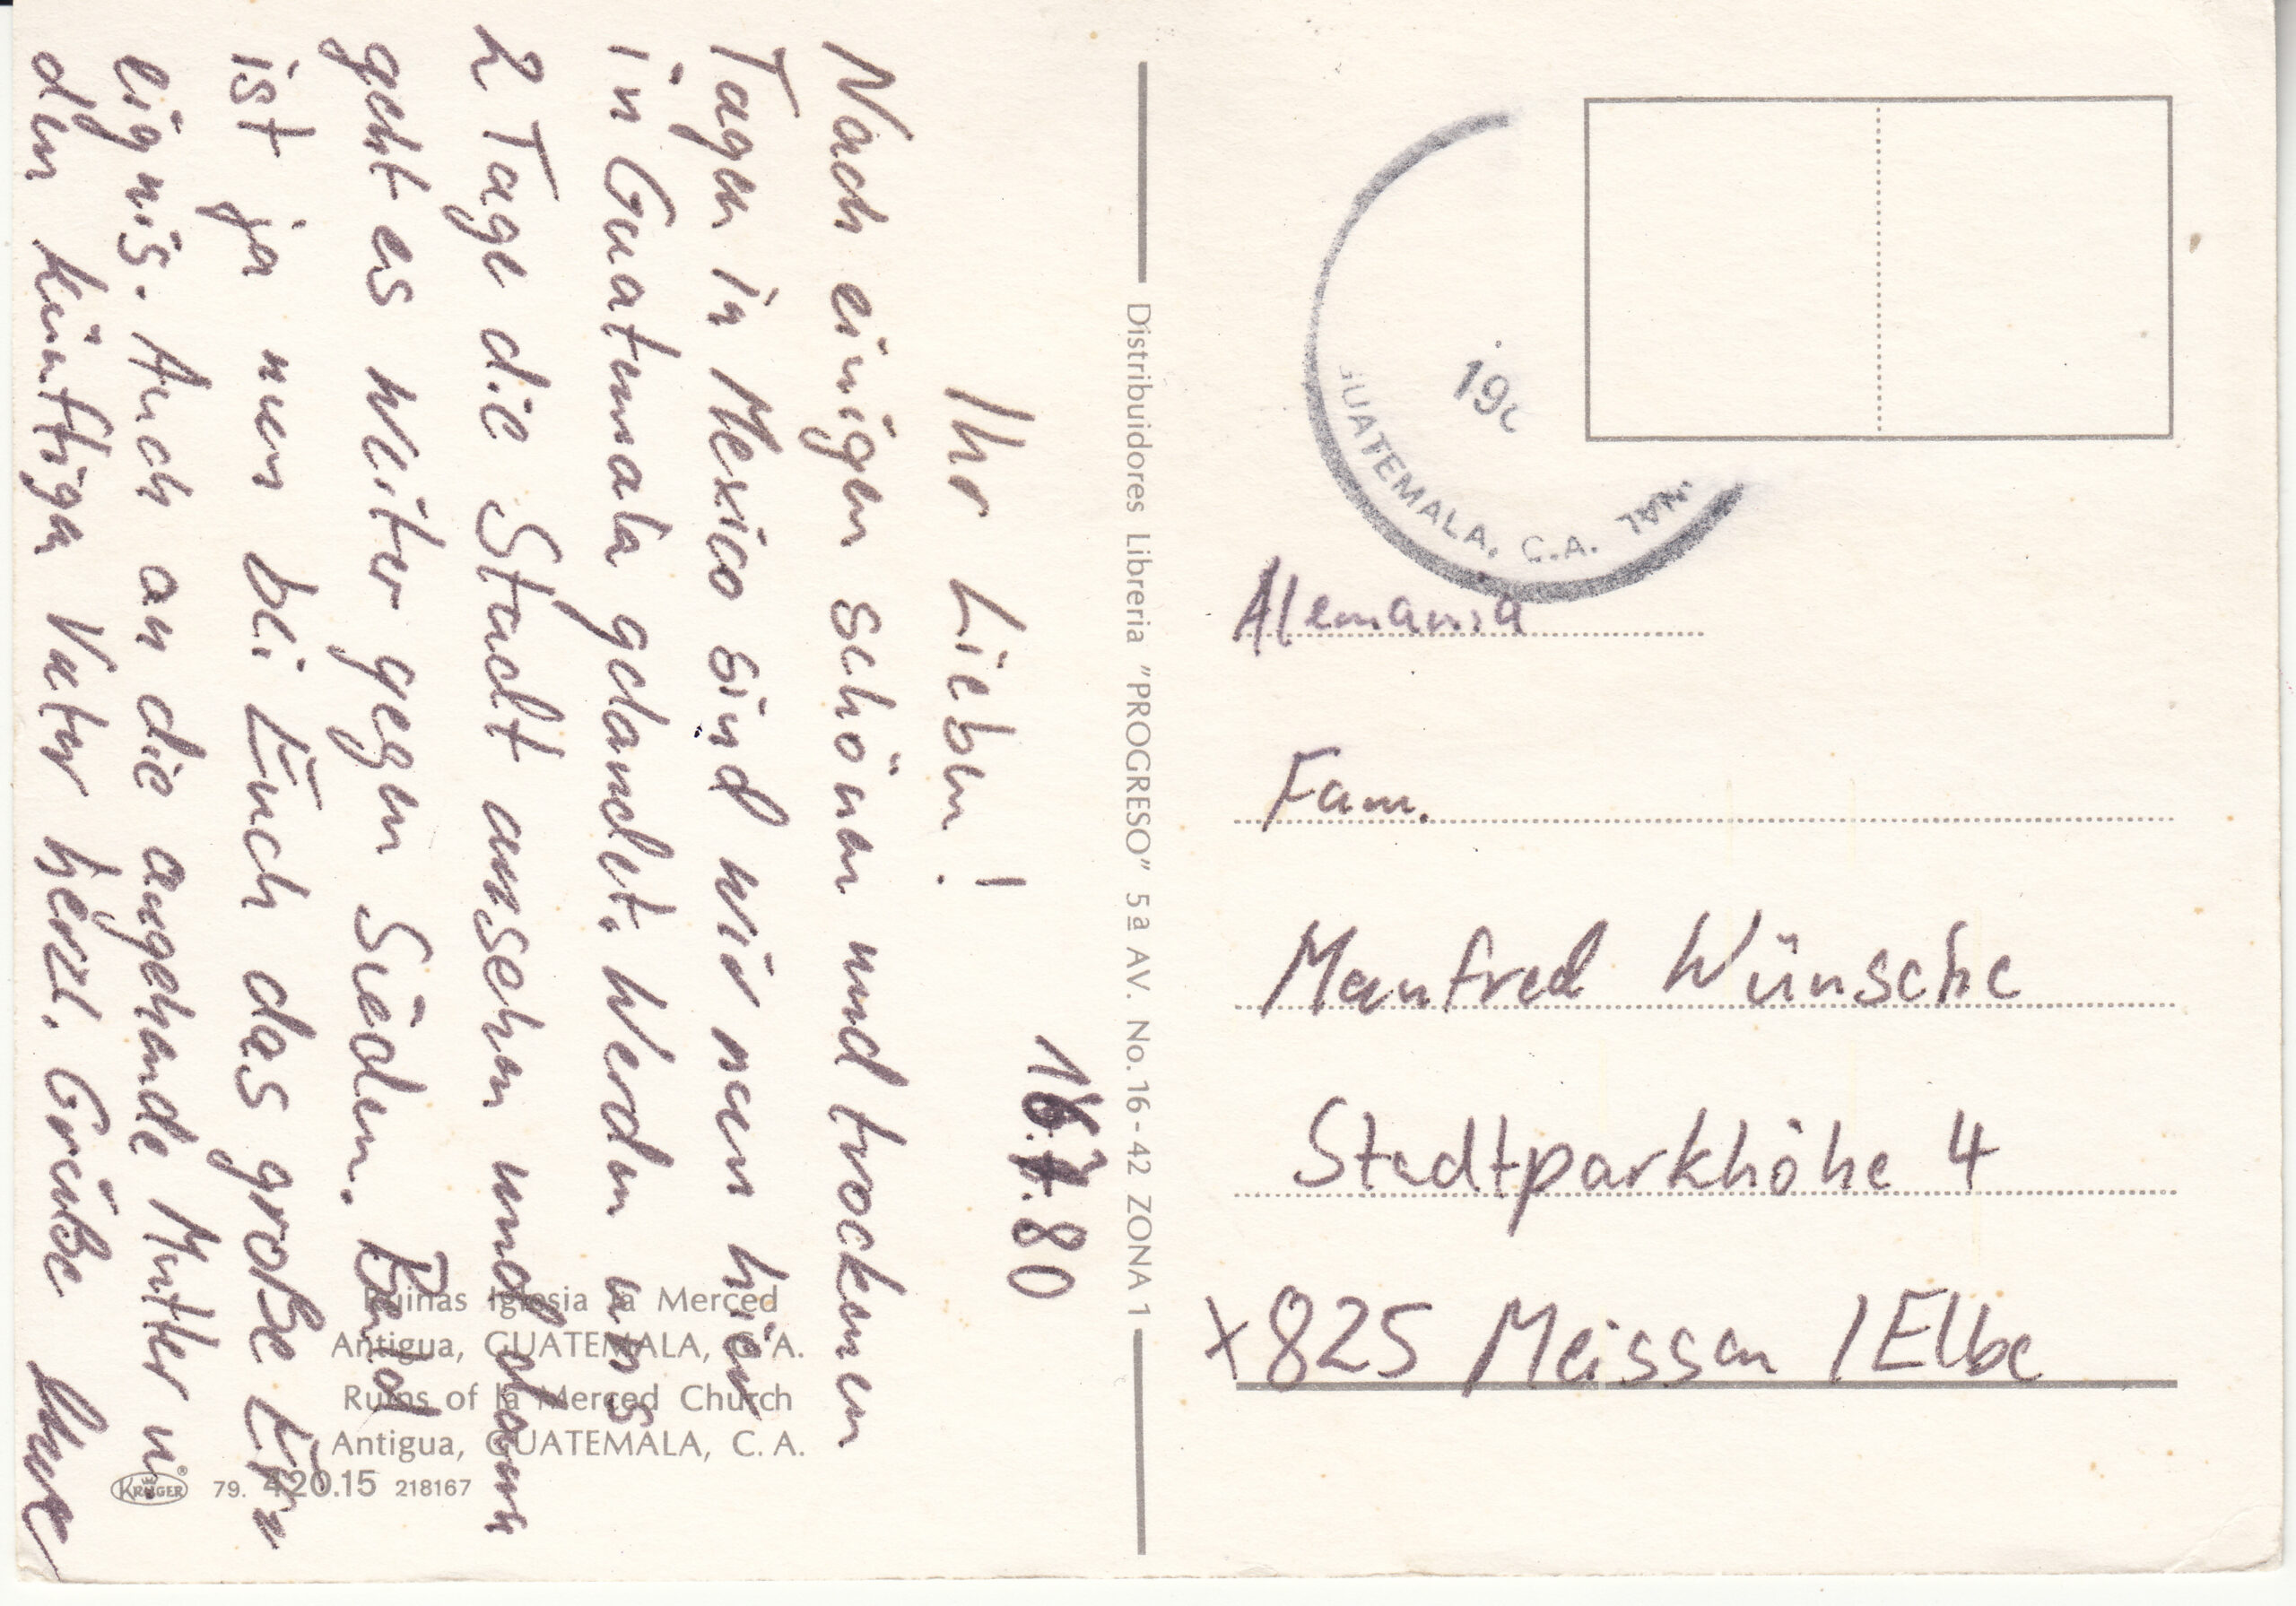 16.7.80
Ihr Lieben!
Nach einigen schönen und trockenen
Tagen in Mexico sind wir nun hier
in Guatemala gelandet. Werden uns
2 Tage die Stadt ansehen und dann
geht es weiter gegen Süden. Bald
ist ja nun bei Euch das große Er-
eignis. Auch an die angehende Mutter u.
den künftigen Vater herzl. Grüße
Ruinas Iglesia la Merced
Antigua, GUATEMALA, C.A.
Ruins of la Merced Church
Antigua, GUATEMALA, C. A.
KRÜGER 79. 420.15 218167
Distribuidores Libreria "PROGRESO" 5ª AV. No. 16 - 42 ZONA 1
GUATEMALA, C.A.
Alemania
Fam.
Manfred Wünsche
Stadtparkhöhe 4
x825 Meissen / Elbe